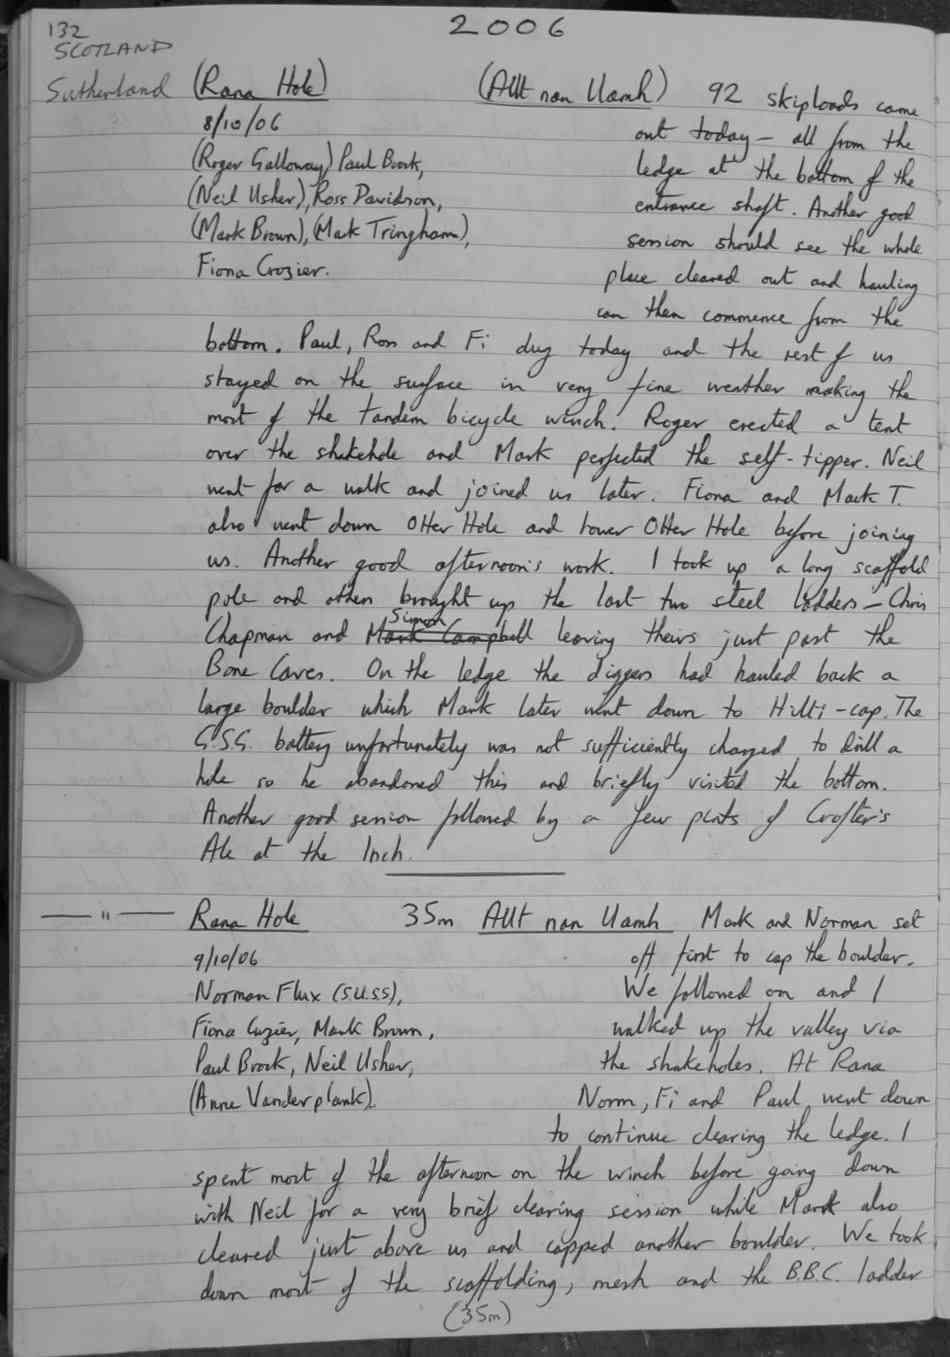 132
2006
SCOTLAND
Sutherland (Rana Hole) (Allt nan Uamh) 92 skiploads came
8/10/06 out today - all from the
(Roger Galloway) Paul Brook, ledge at the bottom of the
(Neil Usher), Ross Davidson, entrance shaft. Another good
(Mark Brown), (Mark Tringham), session should see the whole
Fiona Crozier. place cleared out and hauling
can then commence from the
bottom. Paul, Ross and Fi dug today and the rest of us
stayed on the surface in very fine weather making the
most of the tandem bicycle winch. Roger erected a tent
over the shakehole and Mark perfected the self-tipper. Neil
went for a walk and joined us later. Fiona and Mark T.
also went down Otter Hole and tower Otter Hole before joining
us. Another good afternoon's work. I took up a long scaffold
pole and others brought up the last two steel ladders - Chris
Chapman and Mark Campbell Simon leaving theirs just past the
Bone Caves. On the ledge the diggers had hauled back a
large boulder which Mark later went down to Hilti-cap. The
G.S.G. battery unfortunately was not sufficiently charged to drill a
hole so he abandoned this and briefly visited the bottom.
Another good session followed by a few pints of Crofter's
Ale at the Inch.
— " — Rana Hole 35m Allt nan Uamh Mark and Norman set
9/10/06 off first to cap the boulder.
Norman Flux (S.U.S.S), We followed on and I
Fiona Crozier, Mark Brown, walked up the valley via
Paul Brook, Neil Usher, the shakeholes. At Rana
(Anne Vanderplank). Norm, Fi and Paul went down
to continue clearing the ledge. I
spent most of the afternoon on the winch before going down
with Neil for a very brief clearing session while Mark also
cleared just above us and capped another boulder. We took
down most of the scaffolding, mesh and the B.B.C. ladder
(35m)